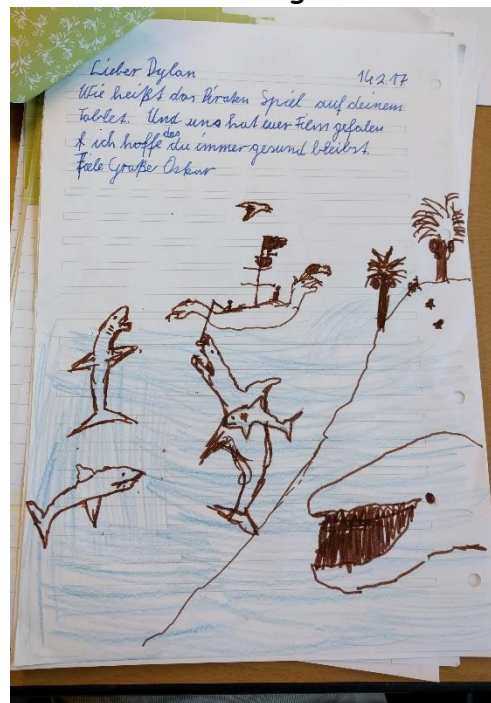 Lieber Dylan 14.2.17
Wie heißt das Piraten Spiel auf deinem
Tablet. Und uns hat euer Film gefalen
& ich hoffe das du immer gesund bleibst.
Fiele Grüße Oskar